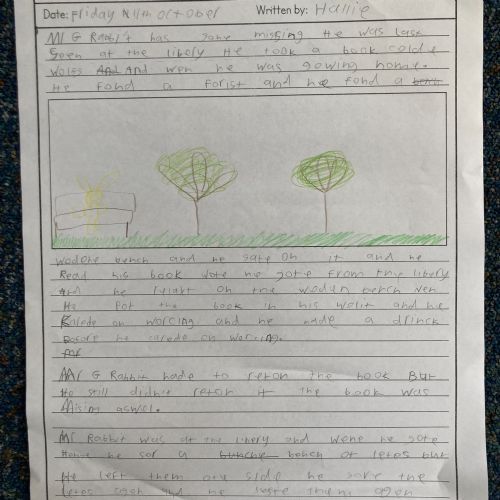 Date: Friday 11th october Written by: Hallie
Mr G Rabbit has gone missing He was last
seen at the libely He took a book colde
woles And And wen he was gowing home.
He fond a forist and he fond a bench
wodone bench and he sate on it and he
Read his book wote he gote from the libery
And he on the woden bench wen
He Pot the book in his and he
on worcing and he made a drinck
Before he carede on worcing.
Mr G Rabbit hade to reton the book But
He still didn't reton it the book was
Mising aswel.
Mr Rabbit was at the libery and wene he gote
Home he sor a bench of letes but
He left them one side he sore the
letes agen and he them agen